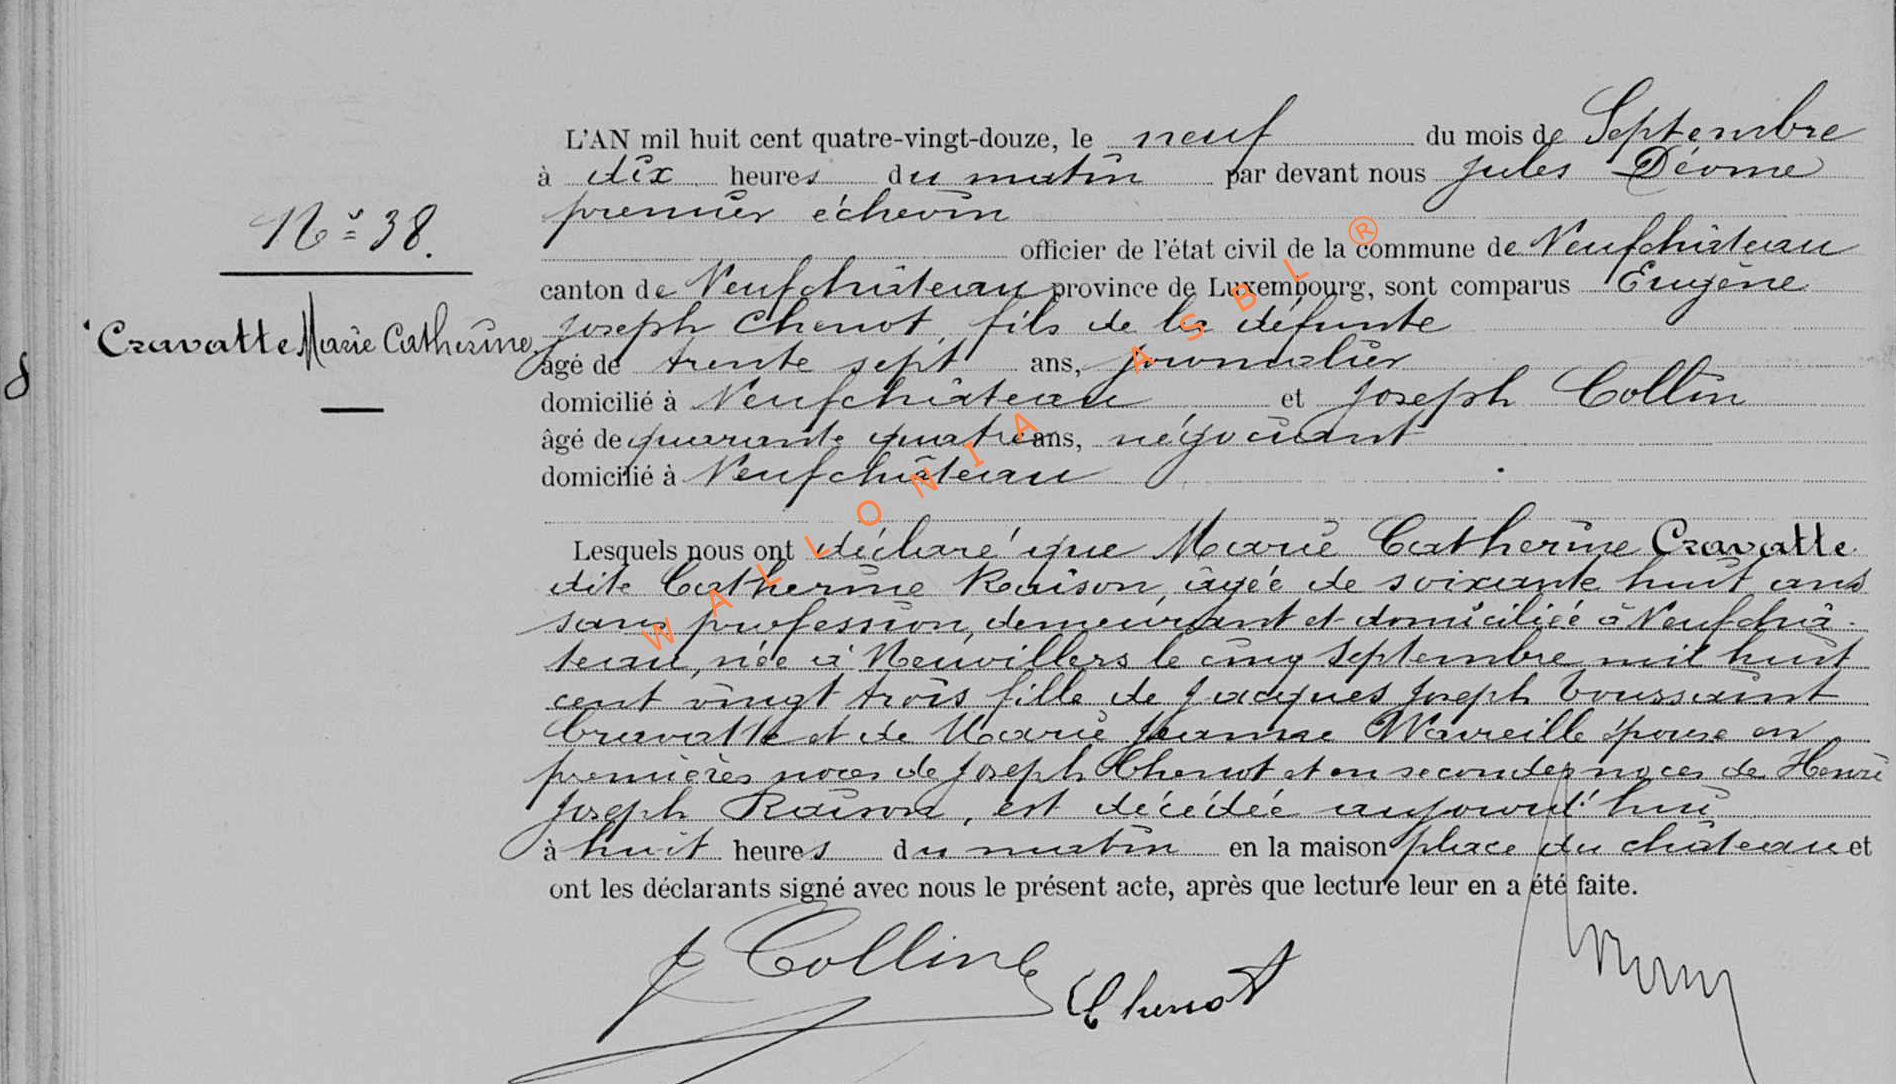 L'AN mil huit cent quatre-vingt-douze, le neuf du mois de Septembre
à dix heures du matin par devant nous Jules Déome
premier échevin
officier de l'état civil de la commune de Neufchâteau
N° 38.
canton de Neufchâteau province de Luxembourg, sont comparus Eugène
Cravatte Marie Catherine
Joseph Chenot, fils de la défunte
âgé de trente sept ans, journalier
domicilié à Neufchâteau et Joseph Collin
âgé de quarante quatre ans, négociant
domicilié à Neufchâteau
Lesquels nous ont déclaré que Marie Catherine Cravatte
dite Catherine Raison, âgée de soixante huit ans
sans profession, demeurant et domiciliée à Neufchâ-
teau, née à Neuvillers le cinq Septembre mil huit
cent vingt trois fille de Jacques Joseph Toussaint
Cravatte et de Marie Jeanne Wavreille épouse en
premières noces de Joseph Chenot et en secondes noces de Henri
Joseph Raison, est décédée aujourd'hui
à huit heures du matin en la maison place du château et
ont les déclarants signé avec nous le présent acte, après que lecture leur en a été faite.
J Collin
E Chenot
WALLONIA ASBL ®